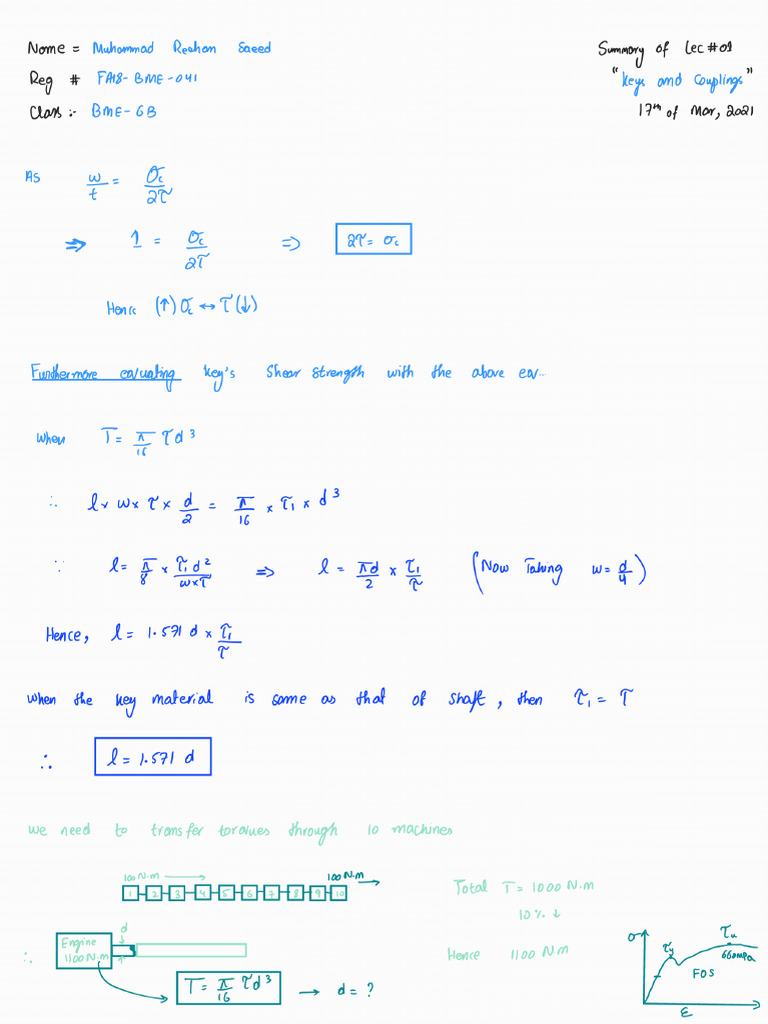 Name = Muhammad Reehan Saeed
Reg # FA18-BME-041
Class :- BME-6B
Summary of Lec #01
"Keys and Couplings"
17th of Mar, 2021
As w/t = σc/2τ
⇒ 1 = σc/2τ ⇒ 2τ = σc
Hence (↑) σc ↔ τ (↓)
Furthermore evaluating key's shear strength with the above
When T = π/16 τ d³
∴ l × w × τ × d/2 = π/16 × τ₁ × d³
∵ l = π/8 × τ₁ d²/w×τ ⇒ l = πd/2 × τ₁/τ (Now Taking w = d/4)
Hence, l = 1.571 d × τ₁/τ
when the key material is same as that of shaft, then τ₁ = τ
∴ l = 1.571 d
we need to transfer torques through 10 machines
100 N.m → 100 N.m →
1 2 3 4 5 6 7 8 9 10
Total T = 1000 N.m
10% ↓
Hence 1100 Nm
∴ Engine 1100 N.m d
T = π/16 τ d³ → d = ?
σ τy τu
660mpa
FOS
ε